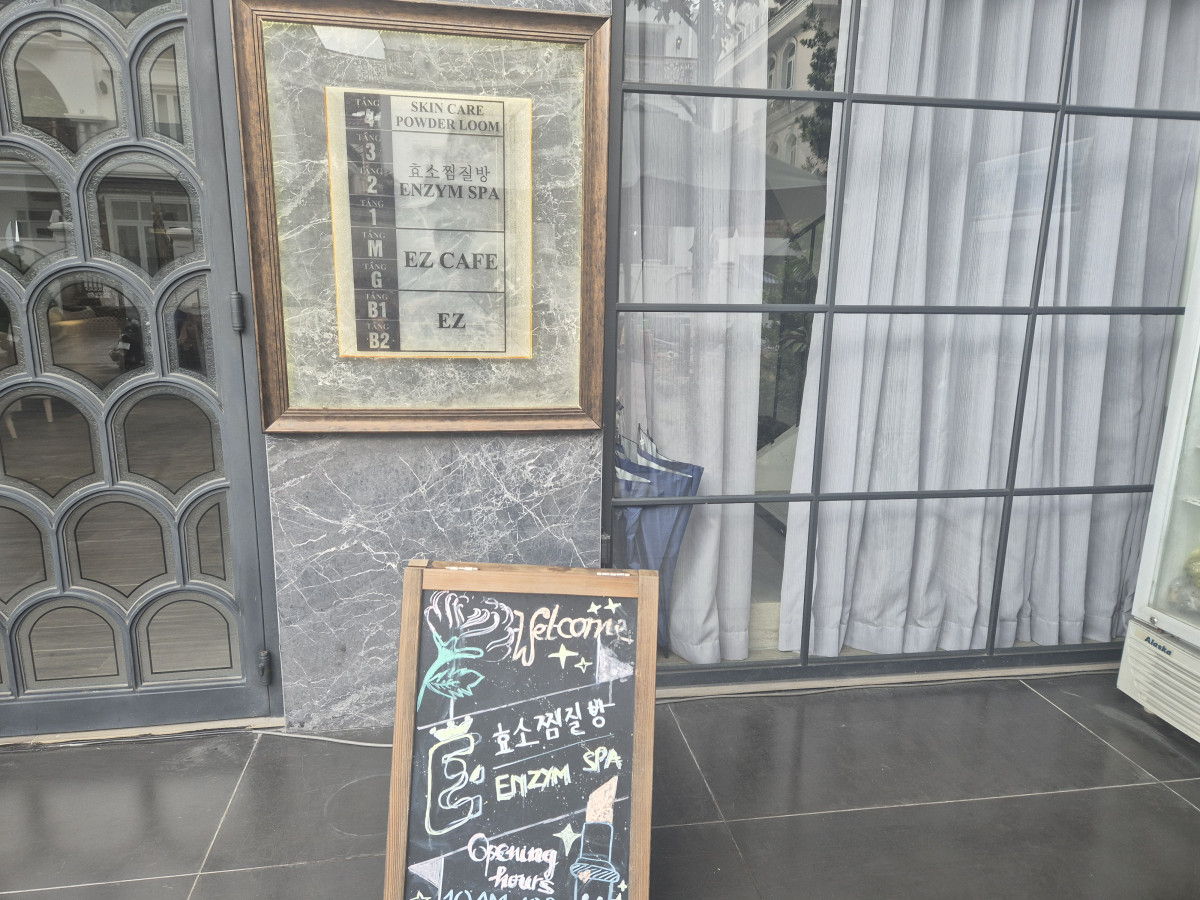 TẦNG 4 SKIN CARE
POWDER LOOM
TẦNG 3
TẦNG 2 효소찜질방
ENZYM SPA
TẦNG 1
TẦNG M EZ CAFE
TẦNG G
TẦNG B1 EZ
TẦNG B2
Welcome
효소찜질방
ENZYM SPA
E
Opening
hours
10AM
Alaska